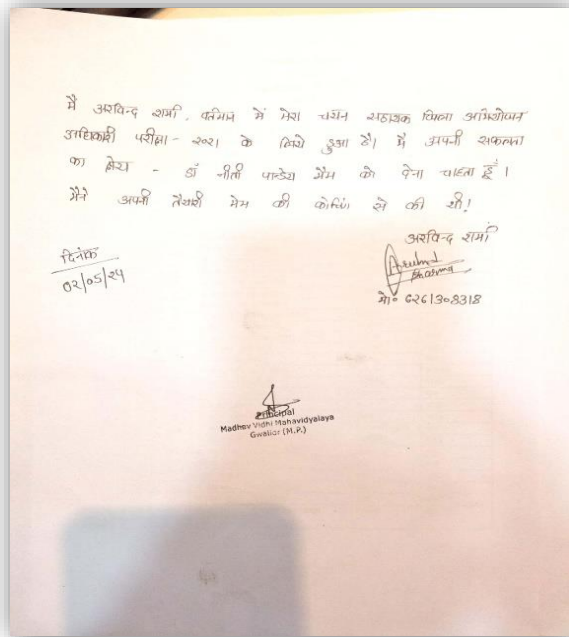 मैं अरविन्द शर्मा, वर्तमान में मेरा चयन सहायक जिला अभियोजन
अधिकारी परीक्षा - २०२१ के लिये हुआ है। मैं अपनी सफलता
का श्रेय - डॉ नीती पाण्डेय मैम को देना चाहता हूँ।
मैने अपनी तैयारी मेम की कोचिंग से की थी!
अरविन्द शर्मा
दिनांक
02/05/24
Arvind
Sharma
मो॰ 6261308318
Principal
Madhav Vidhi Mahavidyalaya
Gwalior (M.P.)